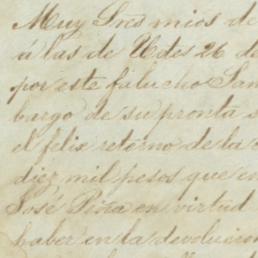 Muy Sres mios de
á las de U des 26 de
por este falucho San
bargo de su pronta s
el felix retorno de la
diez mil pesos que en
José Piña en virtud
haber en la devolucion